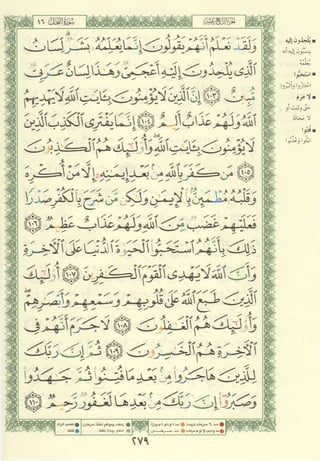 سورة النحل ١٦
الجزء الرابع عشر
وَلَقَدْ نَعْلَمُ أَنَّهُمْ يَقُولُونَ إِنَّمَا يُعَلِّمُهُۥ بَشَرٌ لِّسَانُ
ٱلَّذِى يُلْحِدُونَ إِلَيْهِ أَعْجَمِىٌّ وَهَٰذَا لِسَانٌ عَرَبِىٌّ
مُّبِينٌ ١٠٣ إِنَّ ٱلَّذِينَ لَا يُؤْمِنُونَ بِـَٔايَٰتِ ٱللَّهِ لَا يَهْدِيهِمُ
ٱللَّهُ وَلَهُمْ عَذَابٌ أَلِيمٌ ١٠٤ إِنَّمَا يَفْتَرِى ٱلْكَذِبَ ٱلَّذِينَ
لَا يُؤْمِنُونَ بِـَٔايَٰتِ ٱللَّهِ وَأُو۟لَٰٓئِكَ هُمُ ٱلْكَٰذِبُونَ
١٠٥ مَن كَفَرَ بِٱللَّهِ مِنۢ بَعْدِ إِيمَٰنِهِۦٓ إِلَّا مَنْ أُكْرِهَ
وَقَلْبُهُۥ مُطْمَئِنٌّۢ بِٱلْإِيمَٰنِ وَلَٰكِن مَّن شَرَحَ بِٱلْكُفْرِ صَدْرًا
فَعَلَيْهِمْ غَضَبٌ مِّنَ ٱللَّهِ وَلَهُمْ عَذَابٌ عَظِيمٌ ١٠٦
ذَٰلِكَ بِأَنَّهُمُ ٱسْتَحَبُّوا۟ ٱلْحَيَوٰةَ ٱلدُّنْيَا عَلَى ٱلْءَاخِرَةِ
وَأَنَّ ٱللَّهَ لَا يَهْدِى ٱلْقَوْمَ ٱلْكَٰفِرِينَ ١٠٧ أُو۟لَٰٓئِكَ
ٱلَّذِينَ طَبَعَ ٱللَّهُ عَلَىٰ قُلُوبِهِمْ وَسَمْعِهِمْ وَأَبْصَٰرِهِمْ
وَأُو۟لَٰٓئِكَ هُمُ ٱلْغَٰفِلُونَ ١٠٨ لَا جَرَمَ أَنَّهُمْ فِى
ٱلْءَاخِرَةِ هُمُ ٱلْخَٰسِرُونَ ١٠٩ ثُمَّ إِنَّ رَبَّكَ
لِلَّذِينَ هَاجَرُوا۟ مِنۢ بَعْدِ مَا فُتِنُوا۟ ثُمَّ جَٰهَدُوا۟
وَصَبَرُوٓا۟ إِنَّ رَبَّكَ مِنۢ بَعْدِهَا لَغَفُورٌ رَّحِيمٌ ١١٠
يُلْحِدُونَ إليه
استحبّوا
لا جَرَمَ
فُتِنُوا
٢٧٩